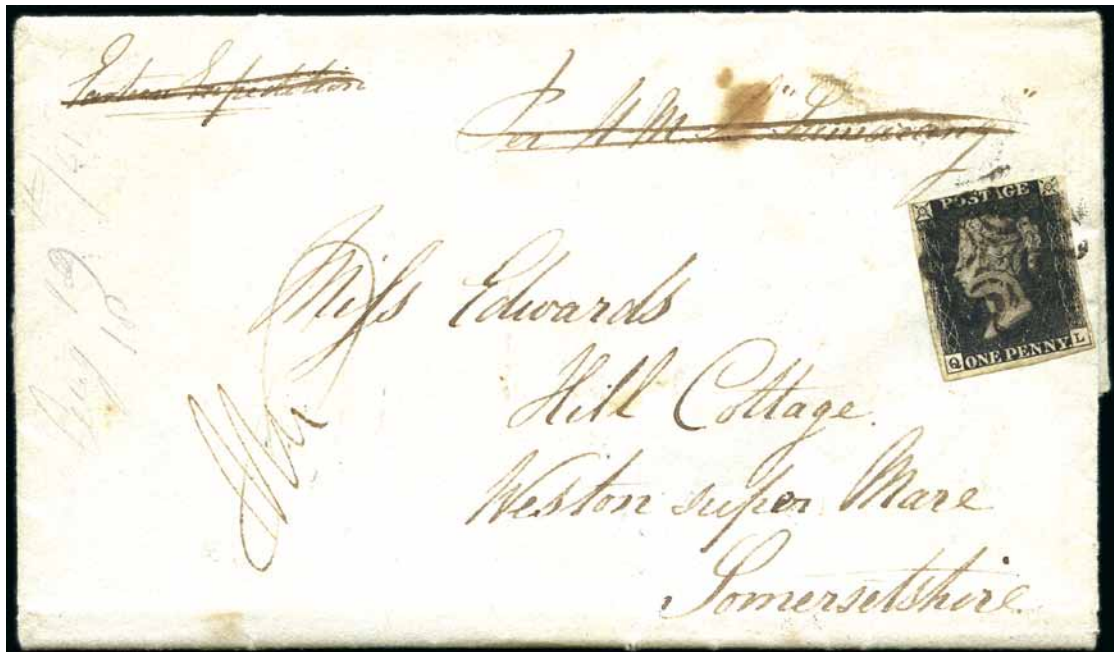 Eastern Expedition
Per H.M.S. "
POSTAGE
Q ONE PENNY L
Miss Edwards
Hill Cottage.
Weston super Mare
Somersetshire